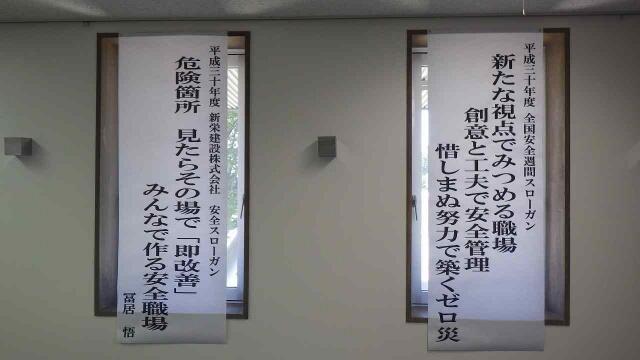 平成三十年度 全国安全週間スローガン
新たな視点でみつめる職場
創意と工夫で安全管理
惜しまぬ努力で築くゼロ災
平成三十年度 新栄建設株式会社 安全スローガン
危険箇所 見たらその場で「即改善」
みんなで作る安全職場
冨居 悟